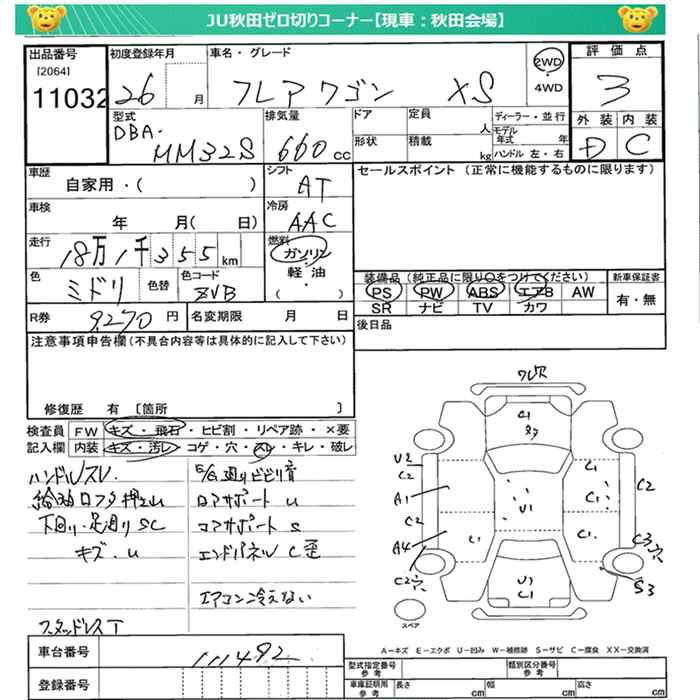 JU秋田ゼロ切りコーナー【現車：秋田会場】
出品番号 初度登録年月 車名・グレード 2WD 評価点
[2064]
11032 26 月 フレアワゴン XS 4WD 3
型式 排気量 ドア 定員 人 ディーラー・並行 外装 内装
DBA- モデル年式 年
MM32S 660 cc 形状 積載 kg ハンドル 左・右 D C
車歴 シフト セールスポイント（正常に機能するものに限ります）
自家用・( ) AT
車検 冷房
年 月( 日) AAC
走行 燃料
18万1千355 km ガソリン
色 色替 色コード 軽・油 装備品（純正品に限り○をつけてください） 新車保証書
ミドリ ZVB ( ) PS PW ABS エアB AW 有・無
R券 9,270 円 名変期限 月 日 SR ナビ TV カワ
注意事項申告欄(不具合内容等は具体的に記入して下さい) 後日品
修復歴 有 [箇所 ]
検査員 FW キズ・飛石・ヒビ割・リペア跡・×要
記入欄 内装 キズ・汚レ・コゲ・穴・スレ・キレ・破レ
ハンドルスレ
下回り・足廻りSC
キズ・U
スタッドレスT
ビビリ音
ロアサポート U
コアサポート S
エンドパネル C歪
エアコン冷えない
ワレ
C1
U2
C2 C1 C2
A1 C1
U1
C2 C1
A4 C1
C2
U1 S3
C1
スペア
A－キズ E－エクボ U－凹み W－補修跡 S－サビ C－腐食 XX－交換済
車台番号 111492 型式指定番号 参考 類別区分番号 参考
登録番号 車庫証明用 参考 長さ cm 幅 cm 高さ cm